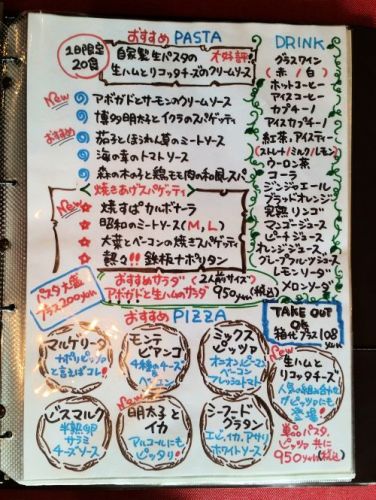 おすすめ PASTA
1日限定
20食
自家製生パスタの
大好評!
生ハムとリコッタチーズのクリームソース
New
アボガドとサーモンのクリームソース
博多明太子とイクラのスパゲッティ
おすすめ
茄子とほうれん草のミートソース
海の幸のトマトソース
森の木の子と鶏もも肉の和風スパ
焼きあげスパゲッティ
New
焼すぱカルボナーラ
昭和のミートソース(M,L)
大葉とベーコンの焼きスパゲッティ
熱々!! 鉄板ナポリタン
パスタ大盛
プラス200yen
おすすめサラダ (2人前サイズ)
アボガドと生ハムのサラダ 950yen(税込)
DRINK
グラスワイン
(赤/白)
ホットコーヒー
アイスコーヒー
カプチーノ
アイスカプチーノ
紅茶,アイスティー
(ストレート/ミルク/レモン)
ウーロン茶
コーラ
ジンジャエール
ブラッドオレンジ
完熟リンゴ
マンゴージュース
ピーチジュース
オレンジジュース
グレープフルーツジュース
レモンソーダ
メロンソーダ
TAKE OUT
OK
箱代プラス108
yen
おすすめ PIZZA
マルゲリータ
ナポリピッツァ
と言えばコレ!
モンテ
ビアンコ
4種のチーズ
ベーコン
ミックス
ピッツァ
オニオン,ピーマン
ベーコン
フレッシュトマト
New
生ハムと
リコッタチーズ
人気の組み合わせ
がピッツァにも
登場!
ビスマルク
半熟卵
サラミ
チーズソース
New
明太子と
イカ
アルコールにも
ピッタリ!
シーフード
グラタン
エビ,イカ,アサリ
ホワイトソース
単品パスタ,
ピッツァ共に
950yen(税込)